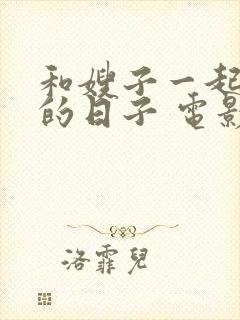 和嫂子一起
的日子 电影
洛霏兒